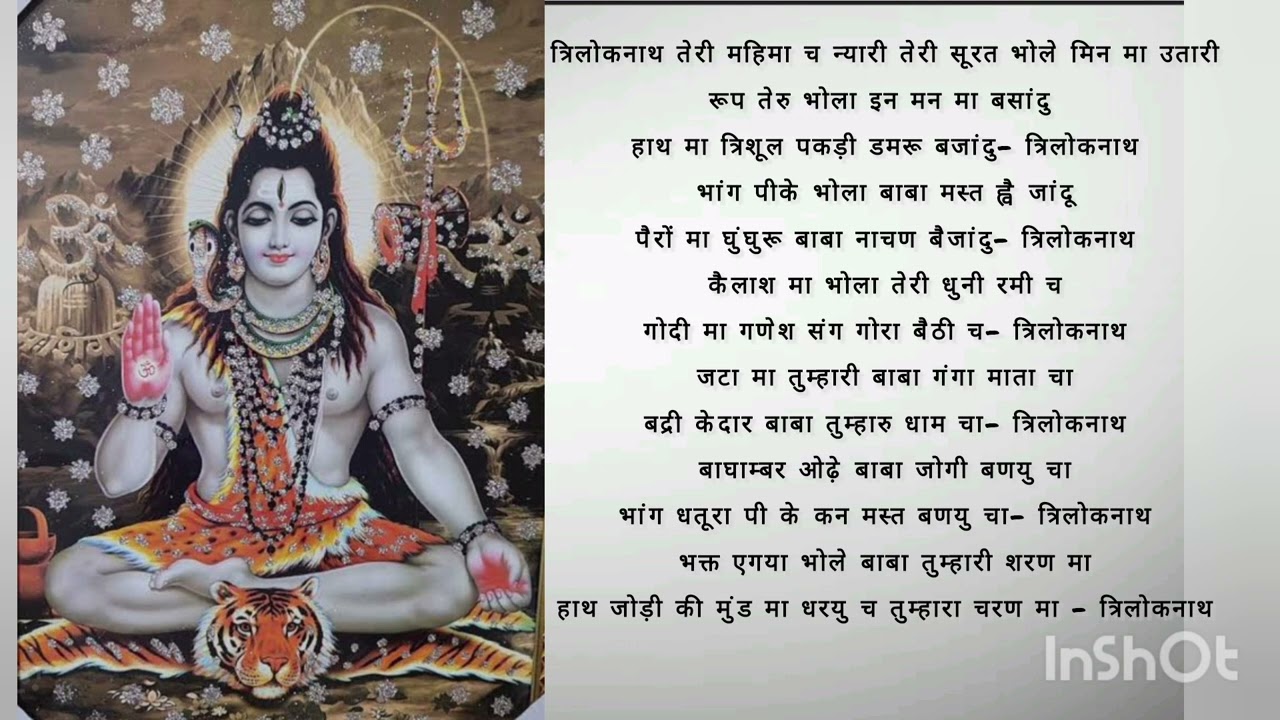 त्रिलोकनाथ तेरी महिमा च न्यारी तेरी सूरत भोले मिन मा उतारी
रूप तेरु भोला इन मन मा बसांदु
हाथ मा त्रिशूल पकड़ी डमरू बजांदु– त्रिलोकनाथ
भांग पीके भोला बाबा मस्त ह्वै जांदू
पैरों मा घुंघुरू बाबा नाचण बैजांदु– त्रिलोकनाथ
कैलाश मा भोला तेरी धुनी रमी च
गोदी मा गणेश संग गोरा बैठी च– त्रिलोकनाथ
जटा मा तुम्हारी बाबा गंगा माता चा
बद्री केदार बाबा तुम्हारु धाम चा– त्रिलोकनाथ
बाघाम्बर ओढ़े बाबा जोगी बणयु चा
भांग धतूरा पी के कन मस्त बणयु चा– त्रिलोकनाथ
भक्त एगया भोले बाबा तुम्हारी शरण मा
हाथ जोड़ी की मुंड मा धरयु च तुम्हारा चरण मा – त्रिलोकनाथ
InShOt
ॐ
ॐ